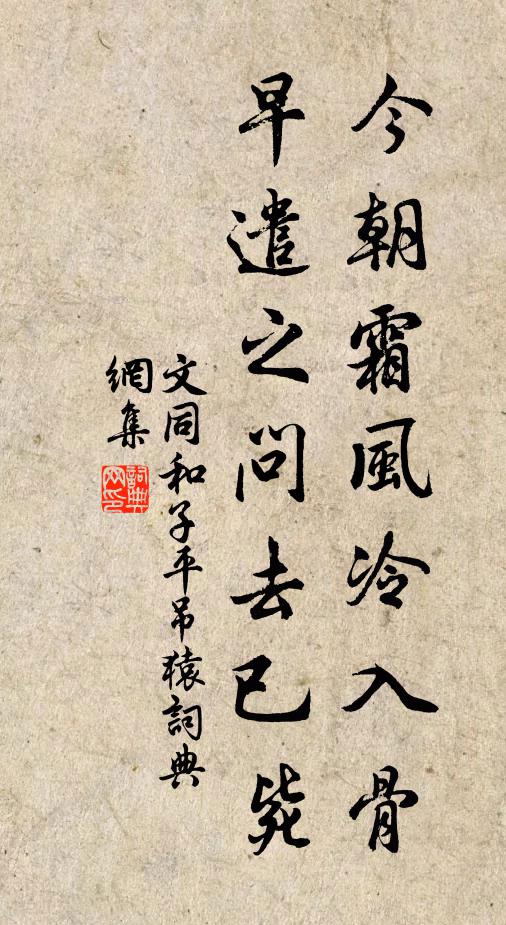 今朝霜風冷入骨
早遣之問去已毙
文同和子平吊猿詞典
網集
詞典網印